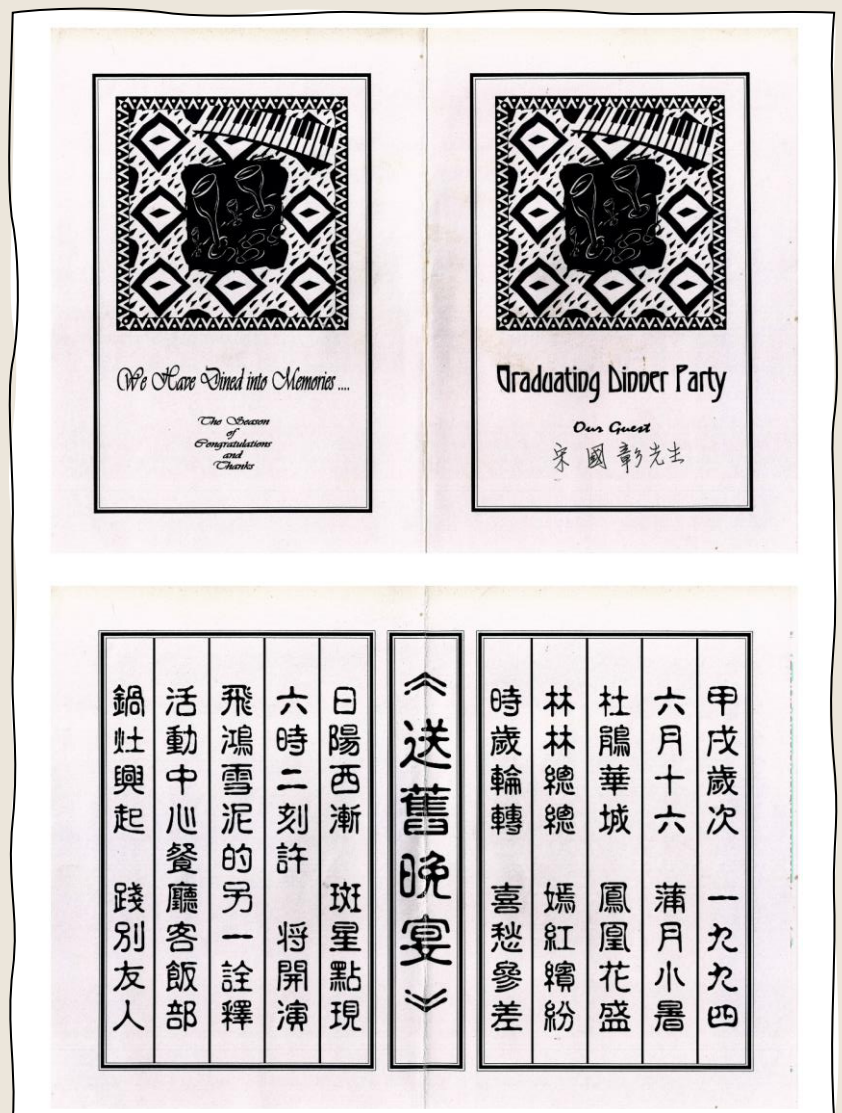 We Have Dined into Memories ....
The Season
of
Congratulations
and
Thanks
Graduating Dinner Party
Our Guest
宋國彰先生
甲戌歲次　一九九四
六月十六　蒲月小暑
杜鵑華城　鳳凰花盛
林林總總　嫣紅繽紛
時歲輪轉　喜愁參差
《送舊晚宴》
日陽西漸　斑星點現
六時二刻許　将開演
飛鴻雪泥的另一詮釋
活動中心餐廳客飯部
鍋灶興起　踐別友人